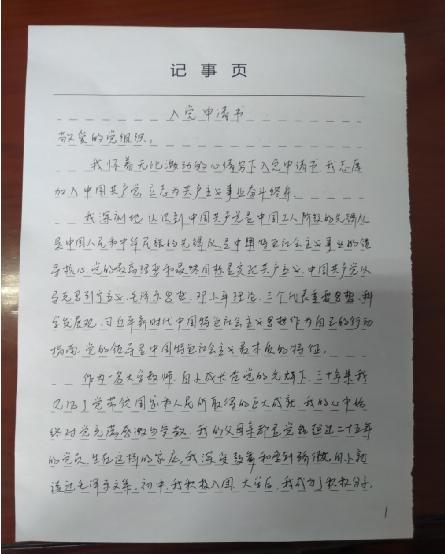 记事页
入党申请书
敬爱的党组织：
我怀着无比激动的心情写下入党申请书 我志愿
加入中国共产党 立志为共产主义事业奋斗终身。
我深刻地认识到中国共产党是中国工人阶级的先锋队
是中国人民和中华民族的先锋队 是中国特色社会主义事业的领
导核心 党的最高理想和最终目标是实现共产主义。中国共产党以
马克思列宁主义、毛泽东思想、邓小平理论、三个代表重要思想、科
学发展观、习近平新时代中国特色社会主义思想作为自己的行动
指南。党的领导是中国特色社会主义最本质的特征。
作为一名大学教师，自小成长在党的光辉下。三十年来我
见证了党带领国家和人民所取得的巨大成就 我的心中始
终对党充满感激与崇敬。我的父母亲都是党龄超过二十五年
的党员。生在这样的家庭，我深受教育和 自小就
读过毛泽东文集。初中，我积极入团。大学后，我成为了积极分子，
1